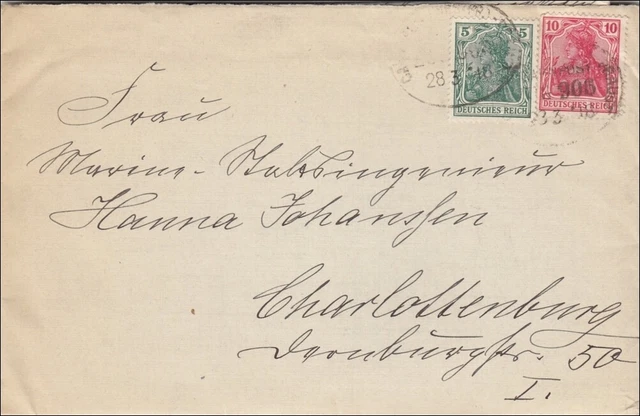 5
10
28.3.18
906
DEUTSCHES REICH
DEUTSCHES REICH
Frau
Marine-Stabsingenieur
Hanna Johanssen
Charlottenburg
Dernburgstr. 50
I.